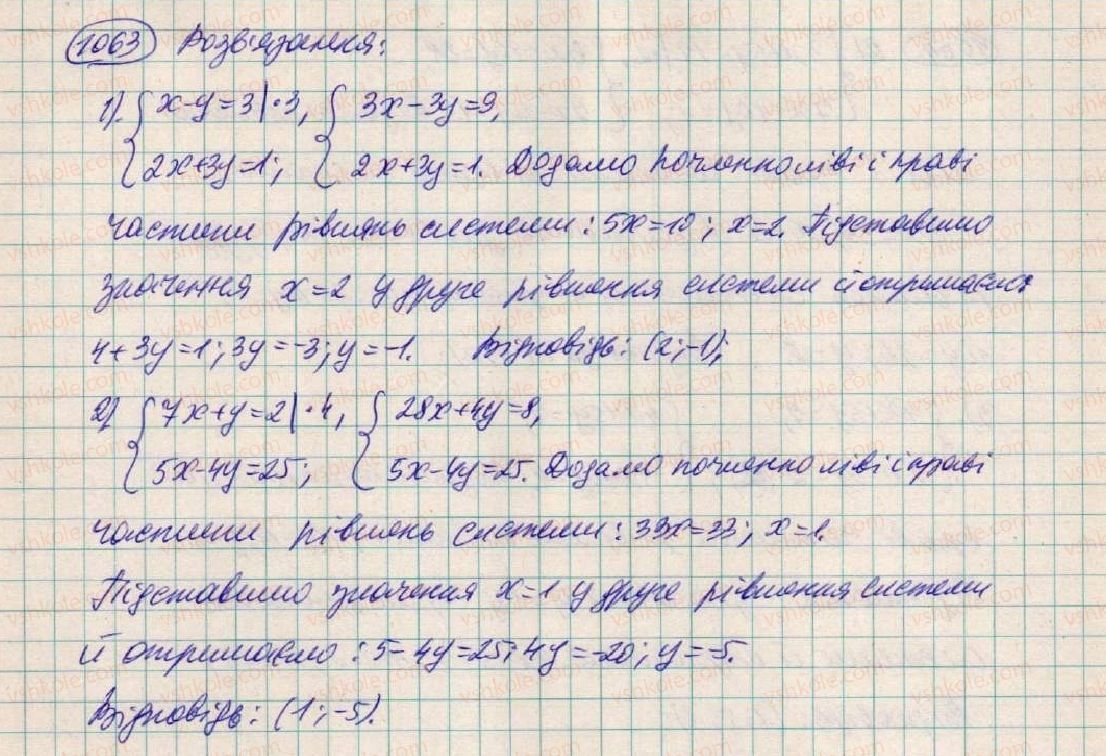 1063 Розв'язання:
1). { x-y=3|·3, { 3x-3y=9,
2x+3y=1; 2x+3y=1. Додамо почленно ліві і праві
частини рівнянь системи: 5x=10; x=2. Підставимо
значення x=2 у друге рівняння системи й отримаємо:
4+3y=1; 3y=-3; y=-1. Відповідь: (2;-1);
2) { 7x+y=2|·4, { 28x+4y=8,
5x-4y=25; 5x-4y=25. Додамо почленно ліві і праві
частини рівнянь системи: 33x=33; x=1.
Підставимо значення x=1 у друге рівняння системи
й отримаємо: 5-4y=25; 4y=-20; y=-5.
Відповідь: (1;-5).